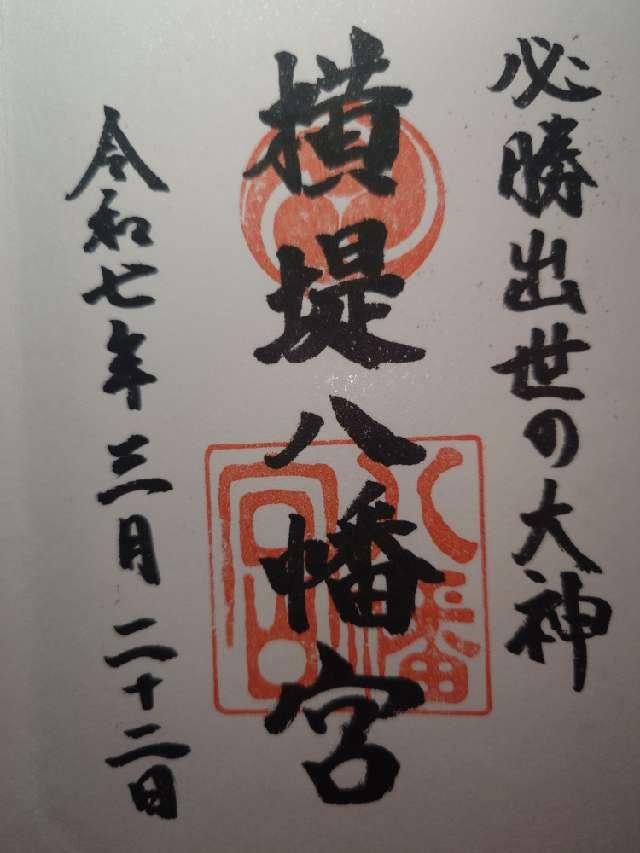 必勝出世の大神
横堤八幡宮
八幡宮
令和七年三月二十二日